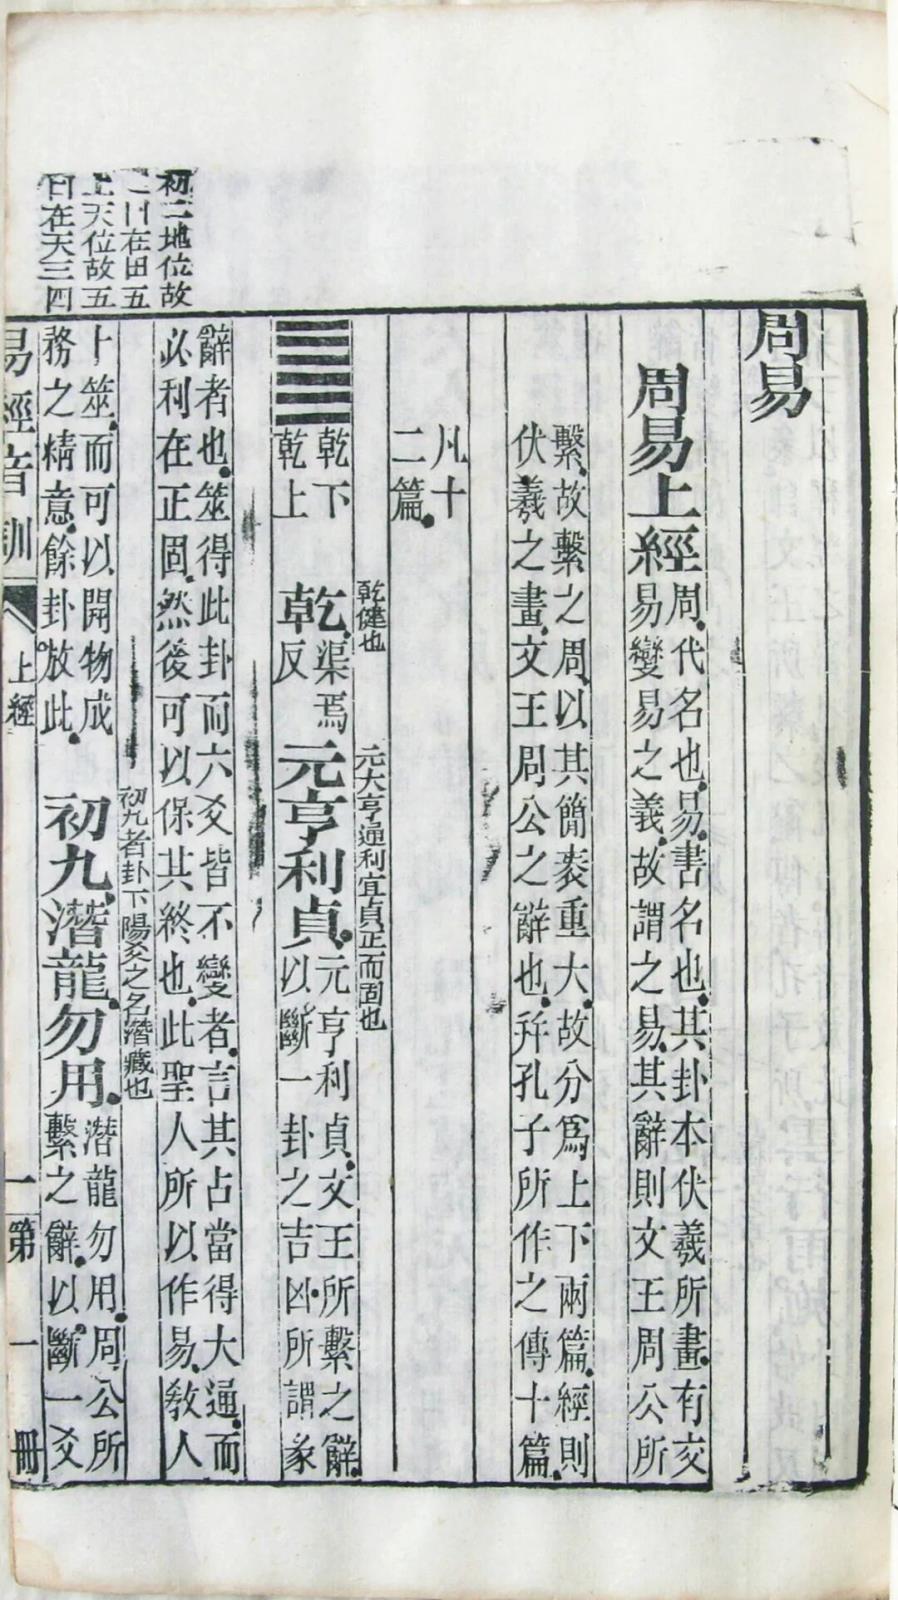 周易
周易上經
周代名也易書名也其卦本伏羲所畫有交
易變易之義故謂之易其辭則文王周公所
繫故繫之周以其簡袠重大故分爲上下兩篇經則
伏羲之畫文王周公之辭也幷孔子所作之傳十篇
凡十
二篇
乾下
乾上
乾健也
乾
渠焉
反
元大亨通利宜貞正而固也
元亨利貞
元亨利貞文王所繫之辭
以斷一卦之吉凶所謂彖
辭者也筮得此卦而六爻皆不變者言其占當得大通而
必利在正固然後可以保其終也此聖人所以作易教人
卜筮而可以開物成
務之精意餘卦放此
初九者卦下陽爻之名潛藏也
初九潛龍勿用
潛龍勿用周公所
繫之辭以斷一爻
初二地位故
二曰在田五
上天位故五
曰在天三四
易經音訓
上經
一
第一冊